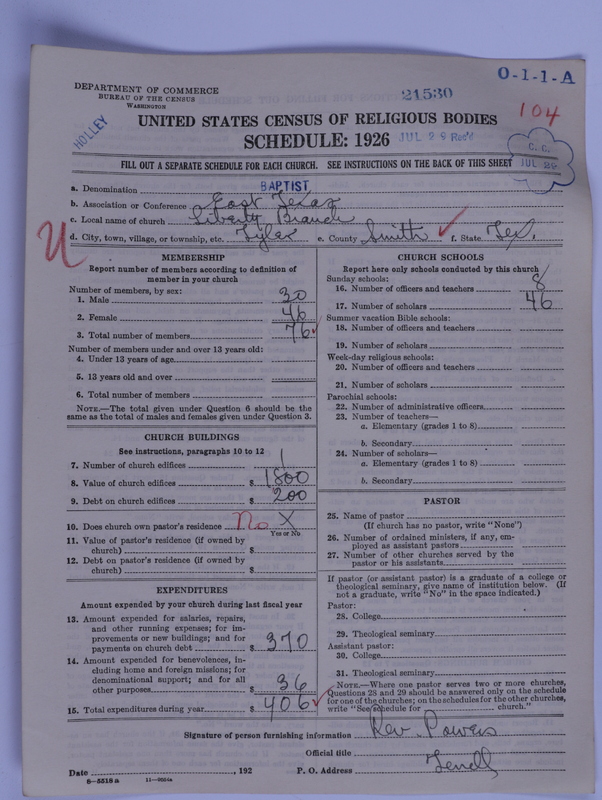 O-1-1-A
DEPARTMENT OF COMMERCE
BUREAU OF THE CENSUS
WASHINGTON
21530
104
HOLLEY
UNITED STATES CENSUS OF RELIGIOUS BODIES
SCHEDULE: 1926
JUL 29 Rec'd
C. C.
JUL 29
FILL OUT A SEPARATE SCHEDULE FOR EACH CHURCH. SEE INSTRUCTIONS ON THE BACK OF THIS SHEET
a. Denomination BAPTIST
b. Association or Conference East Texas
c. Local name of church Liberty Branch
d. City, town, village, or township, etc. Tyler e. County Smith f. State Tex.
MEMBERSHIP
Report number of members according to definition of
member in your church
Number of members, by sex:
1. Male 30
2. Female 46
3. Total number of members 76
Number of members under and over 13 years old:
4. Under 13 years of age
5. 13 years old and over
6. Total number of members
NOTE.—The total given under Question 6 should be the
same as the total of males and females given under Question 3.
CHURCH BUILDINGS
See instructions, paragraphs 10 to 12
7. Number of church edifices 1
8. Value of church edifices $ 1800
9. Debt on church edifices $ 200
10. Does church own pastor's residence No X
Yes or No
11. Value of pastor's residence (if owned by
church) $
12. Debt on pastor's residence (if owned by
church) $
EXPENDITURES
Amount expended by your church during last fiscal year
13. Amount expended for salaries, repairs,
and other running expenses; for im-
provements or new buildings; and for
payments on church debt $ 370
14. Amount expended for benevolences, in-
cluding home and foreign missions; for
denominational support; and for all
other purposes $ 36
15. Total expenditures during year $ 406
CHURCH SCHOOLS
Report here only schools conducted by this church
Sunday schools:
16. Number of officers and teachers 8
17. Number of scholars 46
Summer vacation Bible schools:
18. Number of officers and teachers
19. Number of scholars
Week-day religious schools:
20. Number of officers and teachers
21. Number of scholars
Parochial schools:
22. Number of administrative officers
23. Number of teachers—
a. Elementary (grades 1 to 8)
b. Secondary
24. Number of scholars—
a. Elementary (grades 1 to 8)
b. Secondary
PASTOR
25. Name of pastor
(If church has no pastor, write "None")
26. Number of ordained ministers, if any, em-
ployed as assistant pastors
27. Number of other churches served by the
pastor or his assistants
If pastor (or assistant pastor) is a graduate of a college or
theological seminary, give name of institution below. (If
not a graduate, write "No" in the space indicated.)
Pastor:
28. College
29. Theological seminary
Assistant pastor:
30. College
31. Theological seminary
NOTE.—Where one pastor serves two or more churches,
Questions 28 and 29 should be answered only on the schedule
for one of the churches; on the schedules for the other churches,
write "See schedule for church."
Signature of person furnishing information Rev Powers
Official title
Date , 192 P. O. Address
8—5518 a